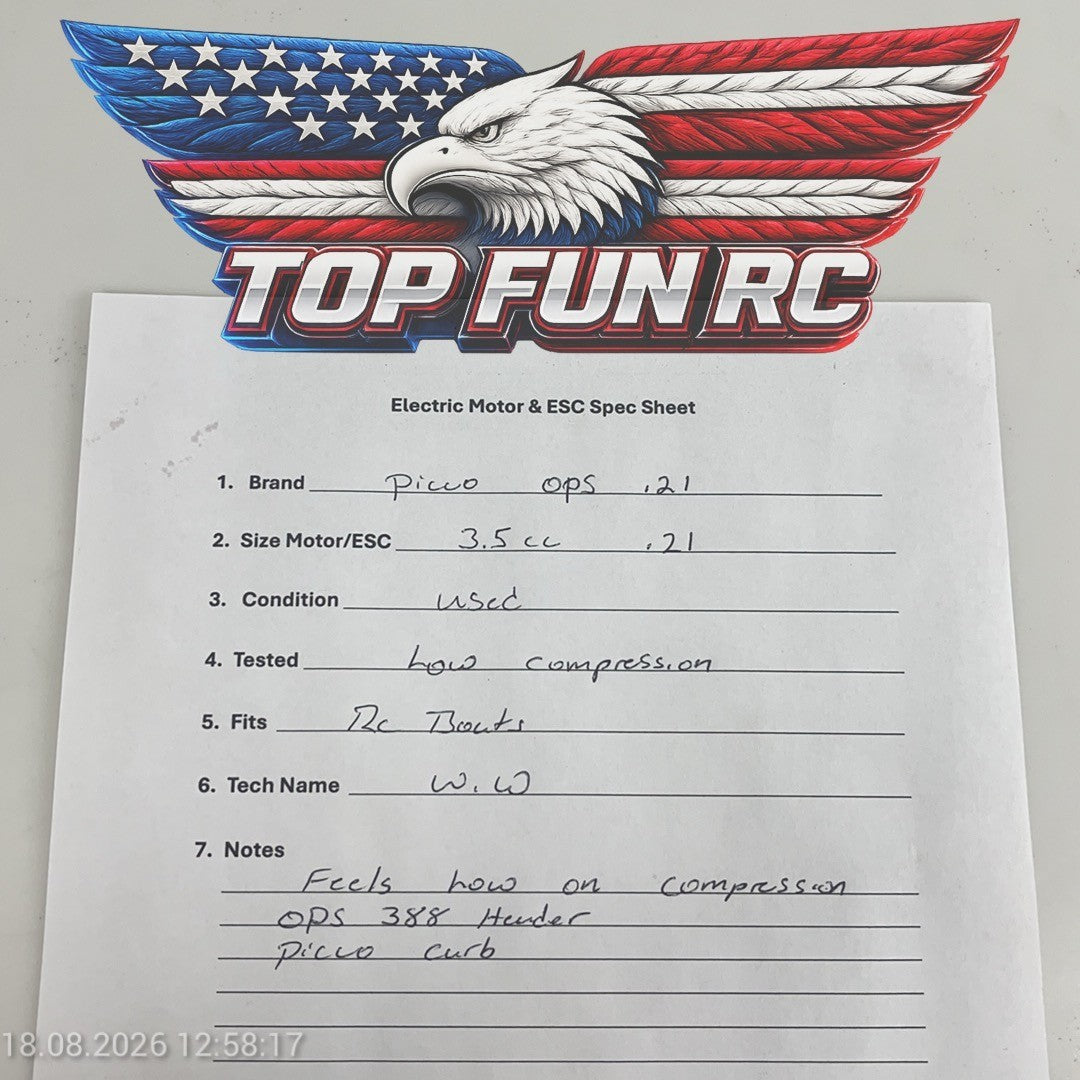 TOP FUN RC
Electric Motor & ESC Spec Sheet
1. Brand Picco OPS .21
2. Size Motor/ESC 3.5cc .21
3. Condition used
4. Tested Low compression
5. Fits Rc Boats
6. Tech Name W.W
7. Notes
Feels Low on compression
OPS 388 Header
Picco Curb
18.08.2026 12:58:17